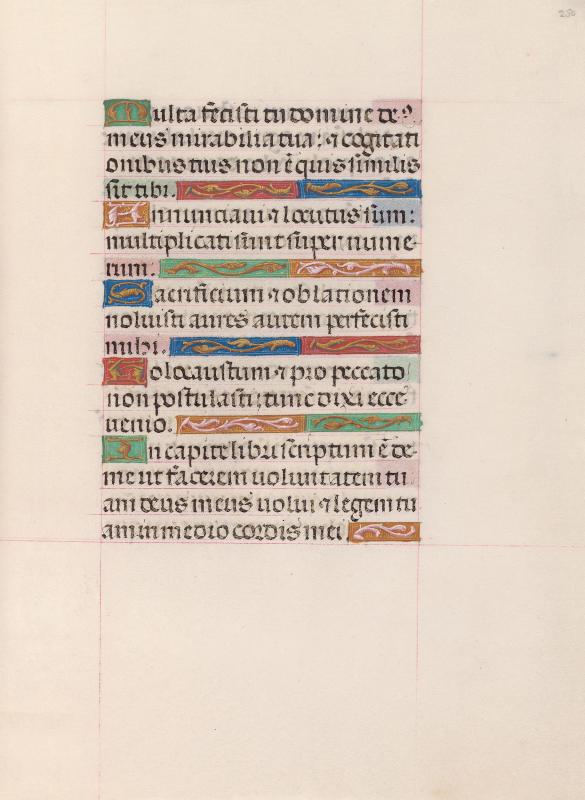 250
Multa fecisti tu domine de9
meus mirabilia tua: ⁊ cogitati
onibus tuis non ē quis similis
sit tibi.
Annunciaui ⁊ locutus sum:
multiplicati sunt super nume-
rum.
Sacrificium ⁊ oblationem
noluisti aures autem perfecisti
mihi.
Holocaustum ⁊ pro peccato
non postulasti: tunc dixi ecce
uenio.
In capite libri scriptum ē de
me ut facerem uoluntatem tu
am deus meus uolui ⁊ legem tu
am in medio cordis mei.